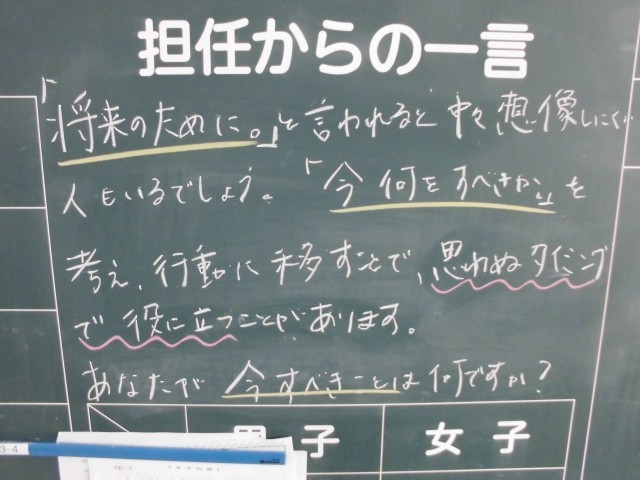 担任からの一言
「将来のために。」と言われると中々想像しにくい
人もいるでしょう。「今何をすべきか」を
考え、行動に移すことで、思わぬタイミング
で役に立つことがあります。
あなたが今すべきことは何ですか?
男子 女子
3-4